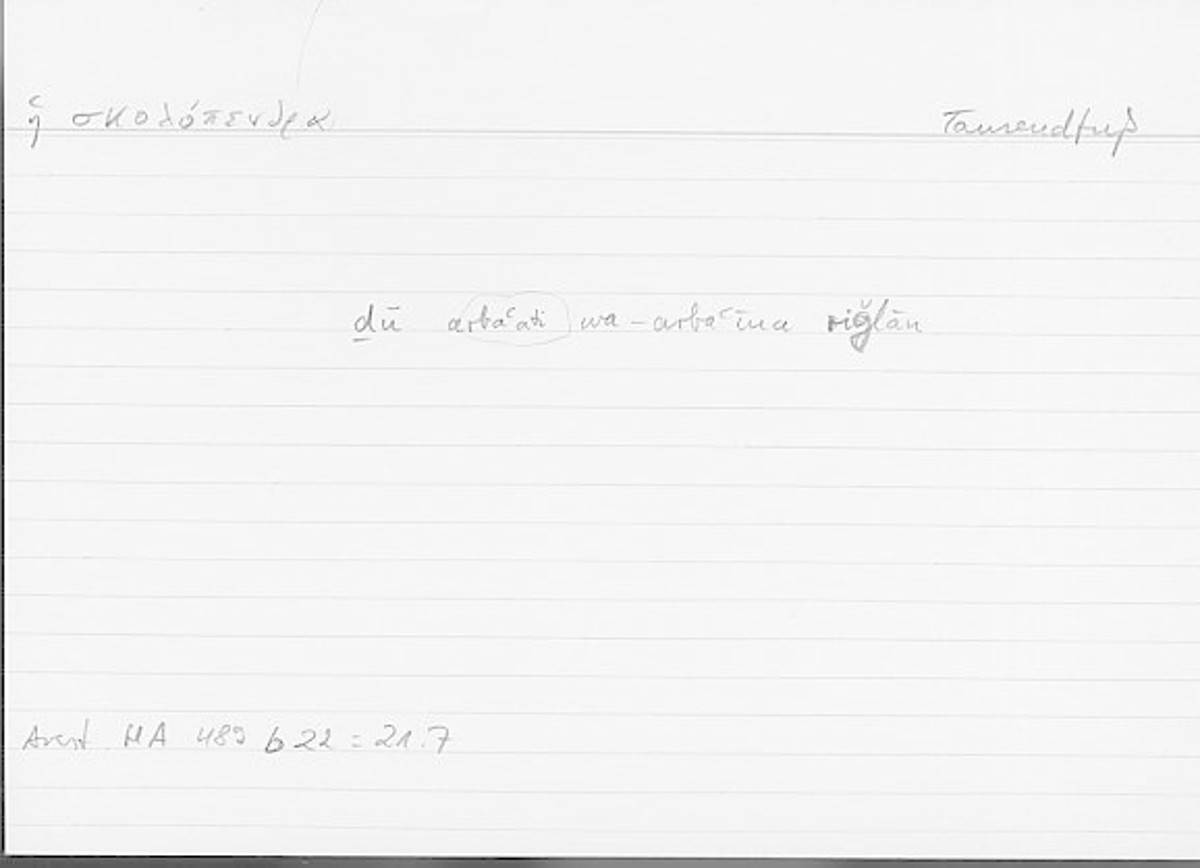 ἡ σκολόπενδρα Tausendfuß
ḏū arbaʿati wa-arbaʿīna riǧlān
Arist HA 489 b 22 = 21.7